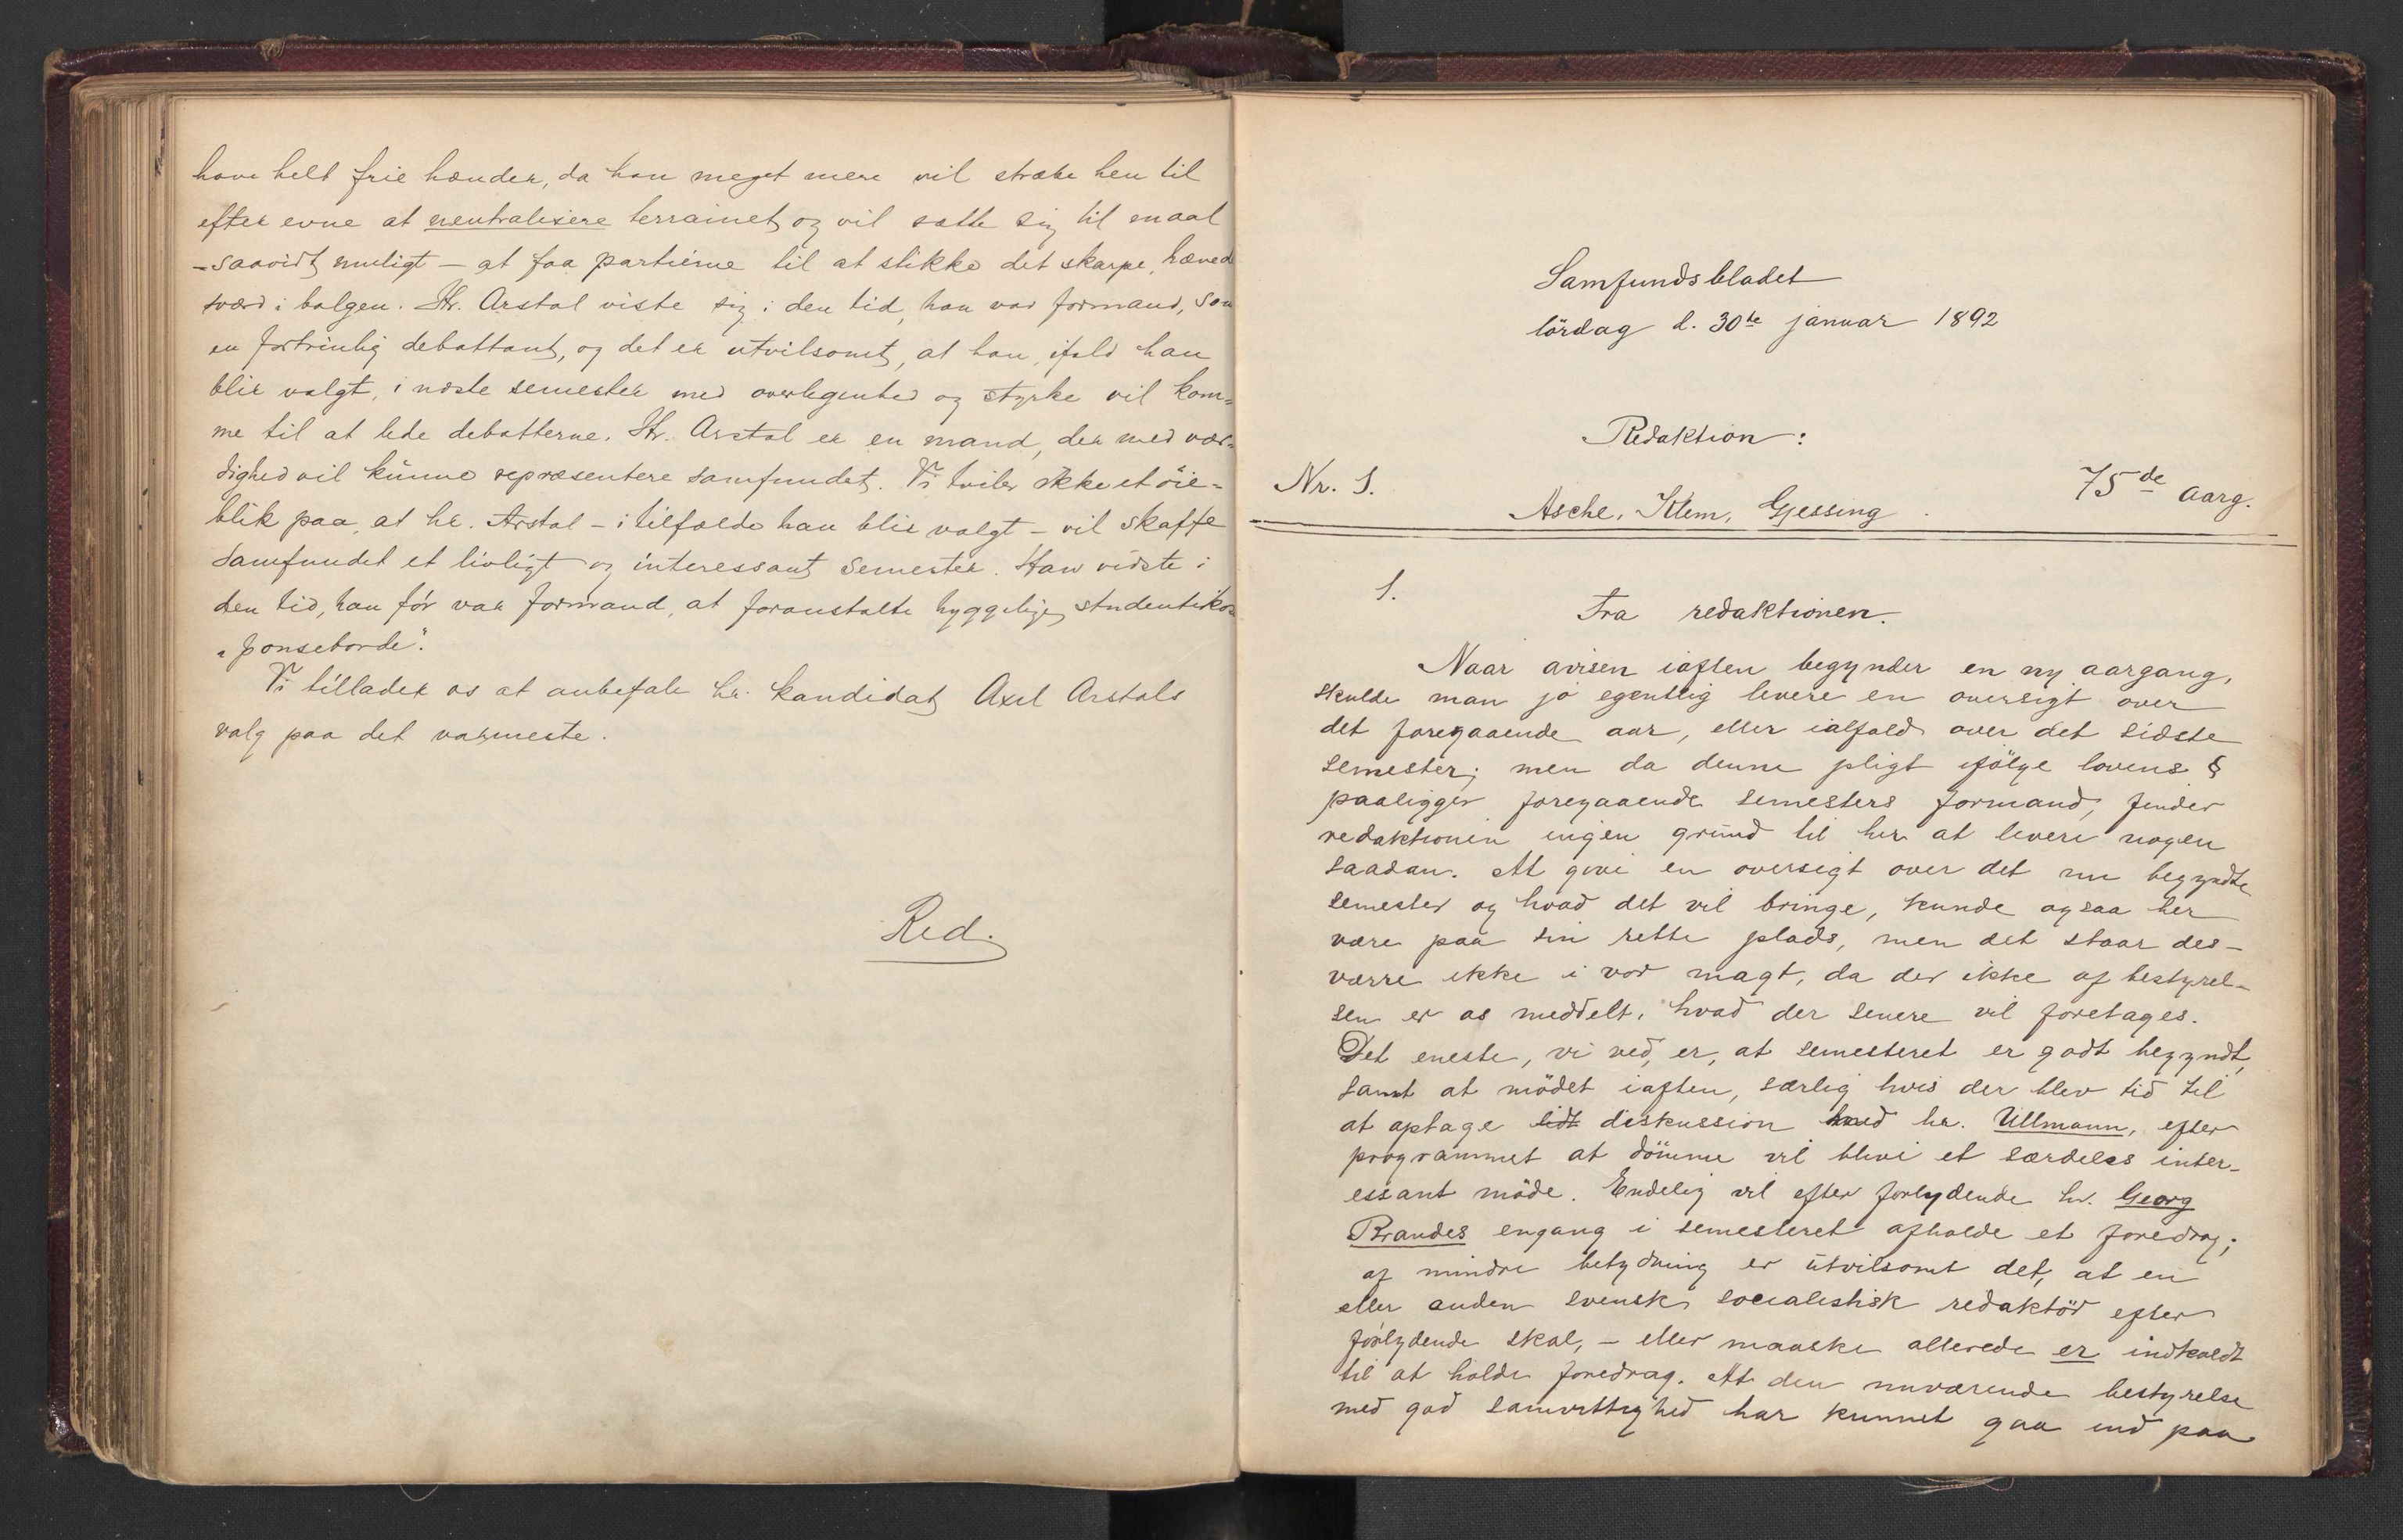 have helt frie hænder, da han meget mere vil stræbe hen til
efter evne at neutralisere terrainet og vil sætte sig til maal
– saavidt muligt – at faa partierne til at stikke det skarpe, hæved
sværd i balgen. Hr. Arstal viste sig i den tid, han var formand, som
en fortrinlig debattant, og det er utvilsomt, at han, ifald han
blir valgt, i næste semester med overlegenhed og styrke vil kom-
me til at lede debatterne. Hr. Arstal er en mand, der med vær-
dighed vil kunne repræsentere samfundet. Vi tviler ikke et öie-
blik paa, at hr. Arstal – i tilfælde han blir valgt – vil skaffe
samfundet et livligt og interessant semester. Han vidste i
den tid, han før var formand, at foranstalte hyggelige, studentikose
"ponseborde".
Vi tillader os at anbefale hr. kandidat Axel Arstals
valg paa det varmeste.
Red.
Samfundsbladet
lördag d. 30te januar 1892
Redaktion:
Nr. 1. 75de aarg.
Asche, Klem, Gjessing
1.
Fra redaktionen.
Naar avisen iaften begynder en ny aargang,
skulde man jo egentlig levere en oversigt over
det foregaaende aar, eller ialfald over det sidste
semester; men da denne pligt ifölge lovens §
paaligger foregaaende semesters formand, finder
redaktionen ingen grund til her at levere nogen
saadan. At give en oversigt over det nu begyndte
semester og hvad det vil bringe, kunde ogsaa her
være paa sin rette plads, men det staar des-
værre ikke i vor magt, da der ikke af bestyrel-
sen er os meddelt, hvad der senere vil foretages.
Det eneste, vi ved, er, at semesteret er godt begyndt,
samt at mödet iaften, særlig hvis der blev tid til
at optage lidt diskussion med hr. Ullmann, efter
programmet at dömme vil blive et særdeles inter-
essant möde. Endelig vil efter forlydende hr. Georg
Brandes engang i semesteret afholde et foredrag;
af mindre betydning er utvilsomt det, at en
eller anden svensk socialistisk redaktör efter
forlydende skal, – eller maaske allerede er indkaldt
til at holde foredrag. At den nuværende bestyrelse
med god samvittighed har kunnet gaa ind paa